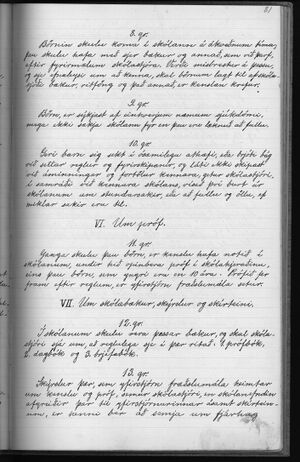 81
8. gr.
Börnin skulu koma í skólann á ákveðnum tíma,
þau skulu hafa með sjer bækur og annað, sem við þarf,
eftir fyrirmælum skólastjóra. Verði misbrestur á þessu,
og sje efnaleysi um að kenna, skal börnum lagt til af skóla-
sjóði bækur, ritföng og það annað, er kenslan krefur.
9. gr.
Börn, er sýkjast af einhverjum næmum sjúkdómi,
mega ekki sækja skólann fyr en þau eru læknuð að fullu.
10. gr.
Geri barn sig sekt í ósæmilegu athæfi, eða brjóti bág
við settar reglur og fyrirskipanir, og láti ekki skipast
við áminningar og fortölur kennara, getur skólastjóri,
í samráði við kennara skólans, vísað því burt úr
skólanum um stundarsakir, eða að fullu og öllu, ef
miklar sakir eru til.
VI. Um próf.
11. gr.
Ganga skulu þau börn, er kenslu hafa notið í
skólanum, undir hið sjerstaka próf í skólahjeraðinu,
eins þau börn, sem yngri eru en 10 ára. Prófið fer
fram eftir reglum, er yfirstjórn fræðslumála setur.
VII. Um skólabækur, skýrslur og skírteini.
12. gr.
Í skólanum skulu vera þessar bækur, og skal skóla-
stjóri sjá um, að reglulega sje í þær ritað: 1. prófbók,
2. dagbók og 3. brjefabók.
13. gr.
Skýrslur þær, sem yfirstjórn fræðslumála heimtar
um kenslu og próf, semur skólastjóri, en skólanefndin
afgreiðir þær til yfirstjórnarinnar ásamt skírtein-
um, er henni ber að semja um fjárhag